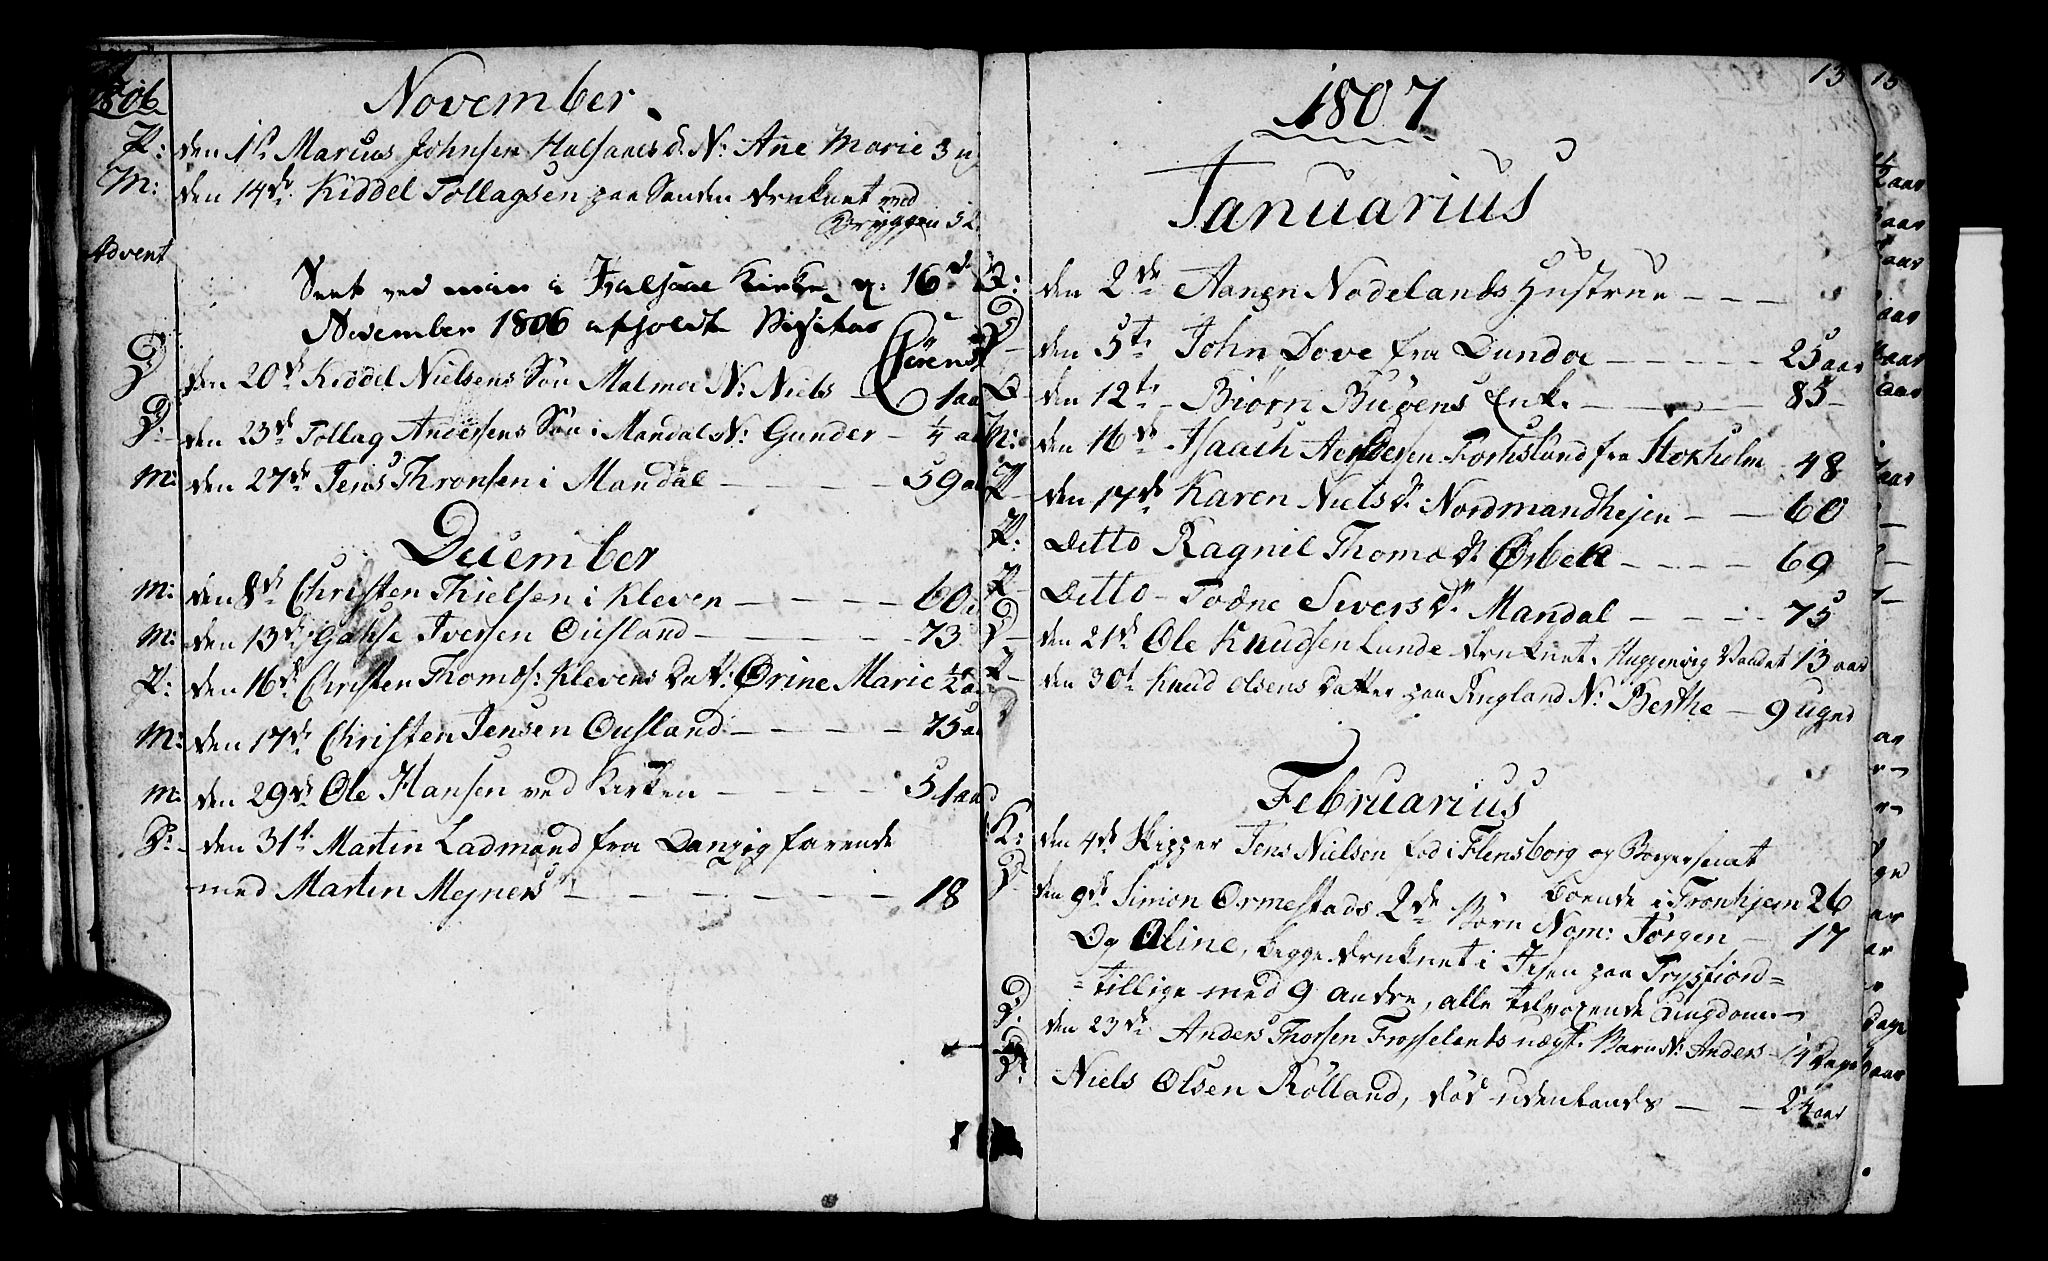 1806
November
P: den 1st Marcus Johnsen Halsaaes d. N: Ane Marie 3 u
M: den 14de Kiddel Tollagsen paa Sanden druknet ved
Bryggen 52
Advent
Seet ved min i Halsaae Kirke d. 16de
November 1806 afholdte Visitas
Sørens
D den 20de Kiddel Nielsens Søn Malmøe N: Niels - 1 aa
D: den 23de Tollag Andersens Søn i Mandal N: Gunder - 1/4 a
M: den 27de Jens Thronsen i Mandal - - - - 59 a
December
M: den 8de Christen Thielsen i Kleven - - - - 60 a
M: den 13de Ousland - - - - 73
P: den 16de Christen Thomas: Klevens Datt: Ørine Marie 1/2 a
M: den 17de Christen Jensen Ousland - - - - 75 a
M: den 29de Ole Hansen ved Kirken - - - - 51 aa
D: den 31te Martin Ladmand fra Danzig farende
med Marten Mejners - - - - - 18
13
1807
Januarius
Q: den 2de Aanen Nodelands Hustrue - - -
D - den 5te John Dove fra Dundee - - - - - 25 aar
Q - den 12te - Biørn Bugens Enk. - - - - 85 -
M: den 16de Isaach Andersen Forhslund fra Stokholm - 48
P - den 17de Karen Niels dr. Nordmandhejen - - 60
P: Ditto Ragnil Thomæ dr. Øsbek - - - - 69
P - Ditto - Todne Sivers dr Mandal - - - - 75
D - den 21de Ole Knudsen Lunde druknet i Vandet 13 aar
P - den 30te Knud Olsens Datter paa Ringland N: Berthe - 9 Uger
Februarius
K: den 4de Skipper Jens Nielsen fød i Flensborg og Borger samt
boende i Tronhjem 26
D den 9de Simon Ormestads 2de Børn Nom: Jørgen - 17
Og Oline, begge druknet i Isen paa Trysfiord=
=tillige med 9 andre, alle tilvoxende Ungdom. -
D: den 23de Anders Thorsen Frosselands uægt. Barn N: Anders - 14 Dage
D: Niels Olsen Rølland, død udenlands - - 24 aar
15